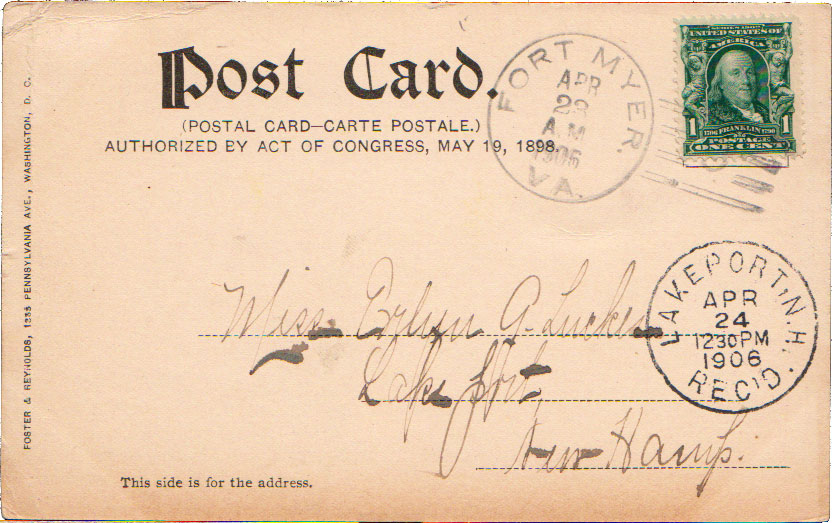 Post Card.
(POSTAL CARD—CARTE POSTALE.)
AUTHORIZED BY ACT OF CONGRESS, MAY 19, 1898.
FORT MYER, VA.
APR
A.M
1906
SERIES 1902
UNITED STATES OF
AMERICA
1 1706 FRANKLIN 1790 1
POSTAGE
ONE CENT
LAKEPORT, N.H.
APR
24
1230PM
1906
REC'D.
Miss A. Tucker
Lake Port,
New Hamp.
This side is for the address.
FOSTER & REYNOLDS, 1335 PENNSYLVANIA AVE., WASHINGTON, D. C.